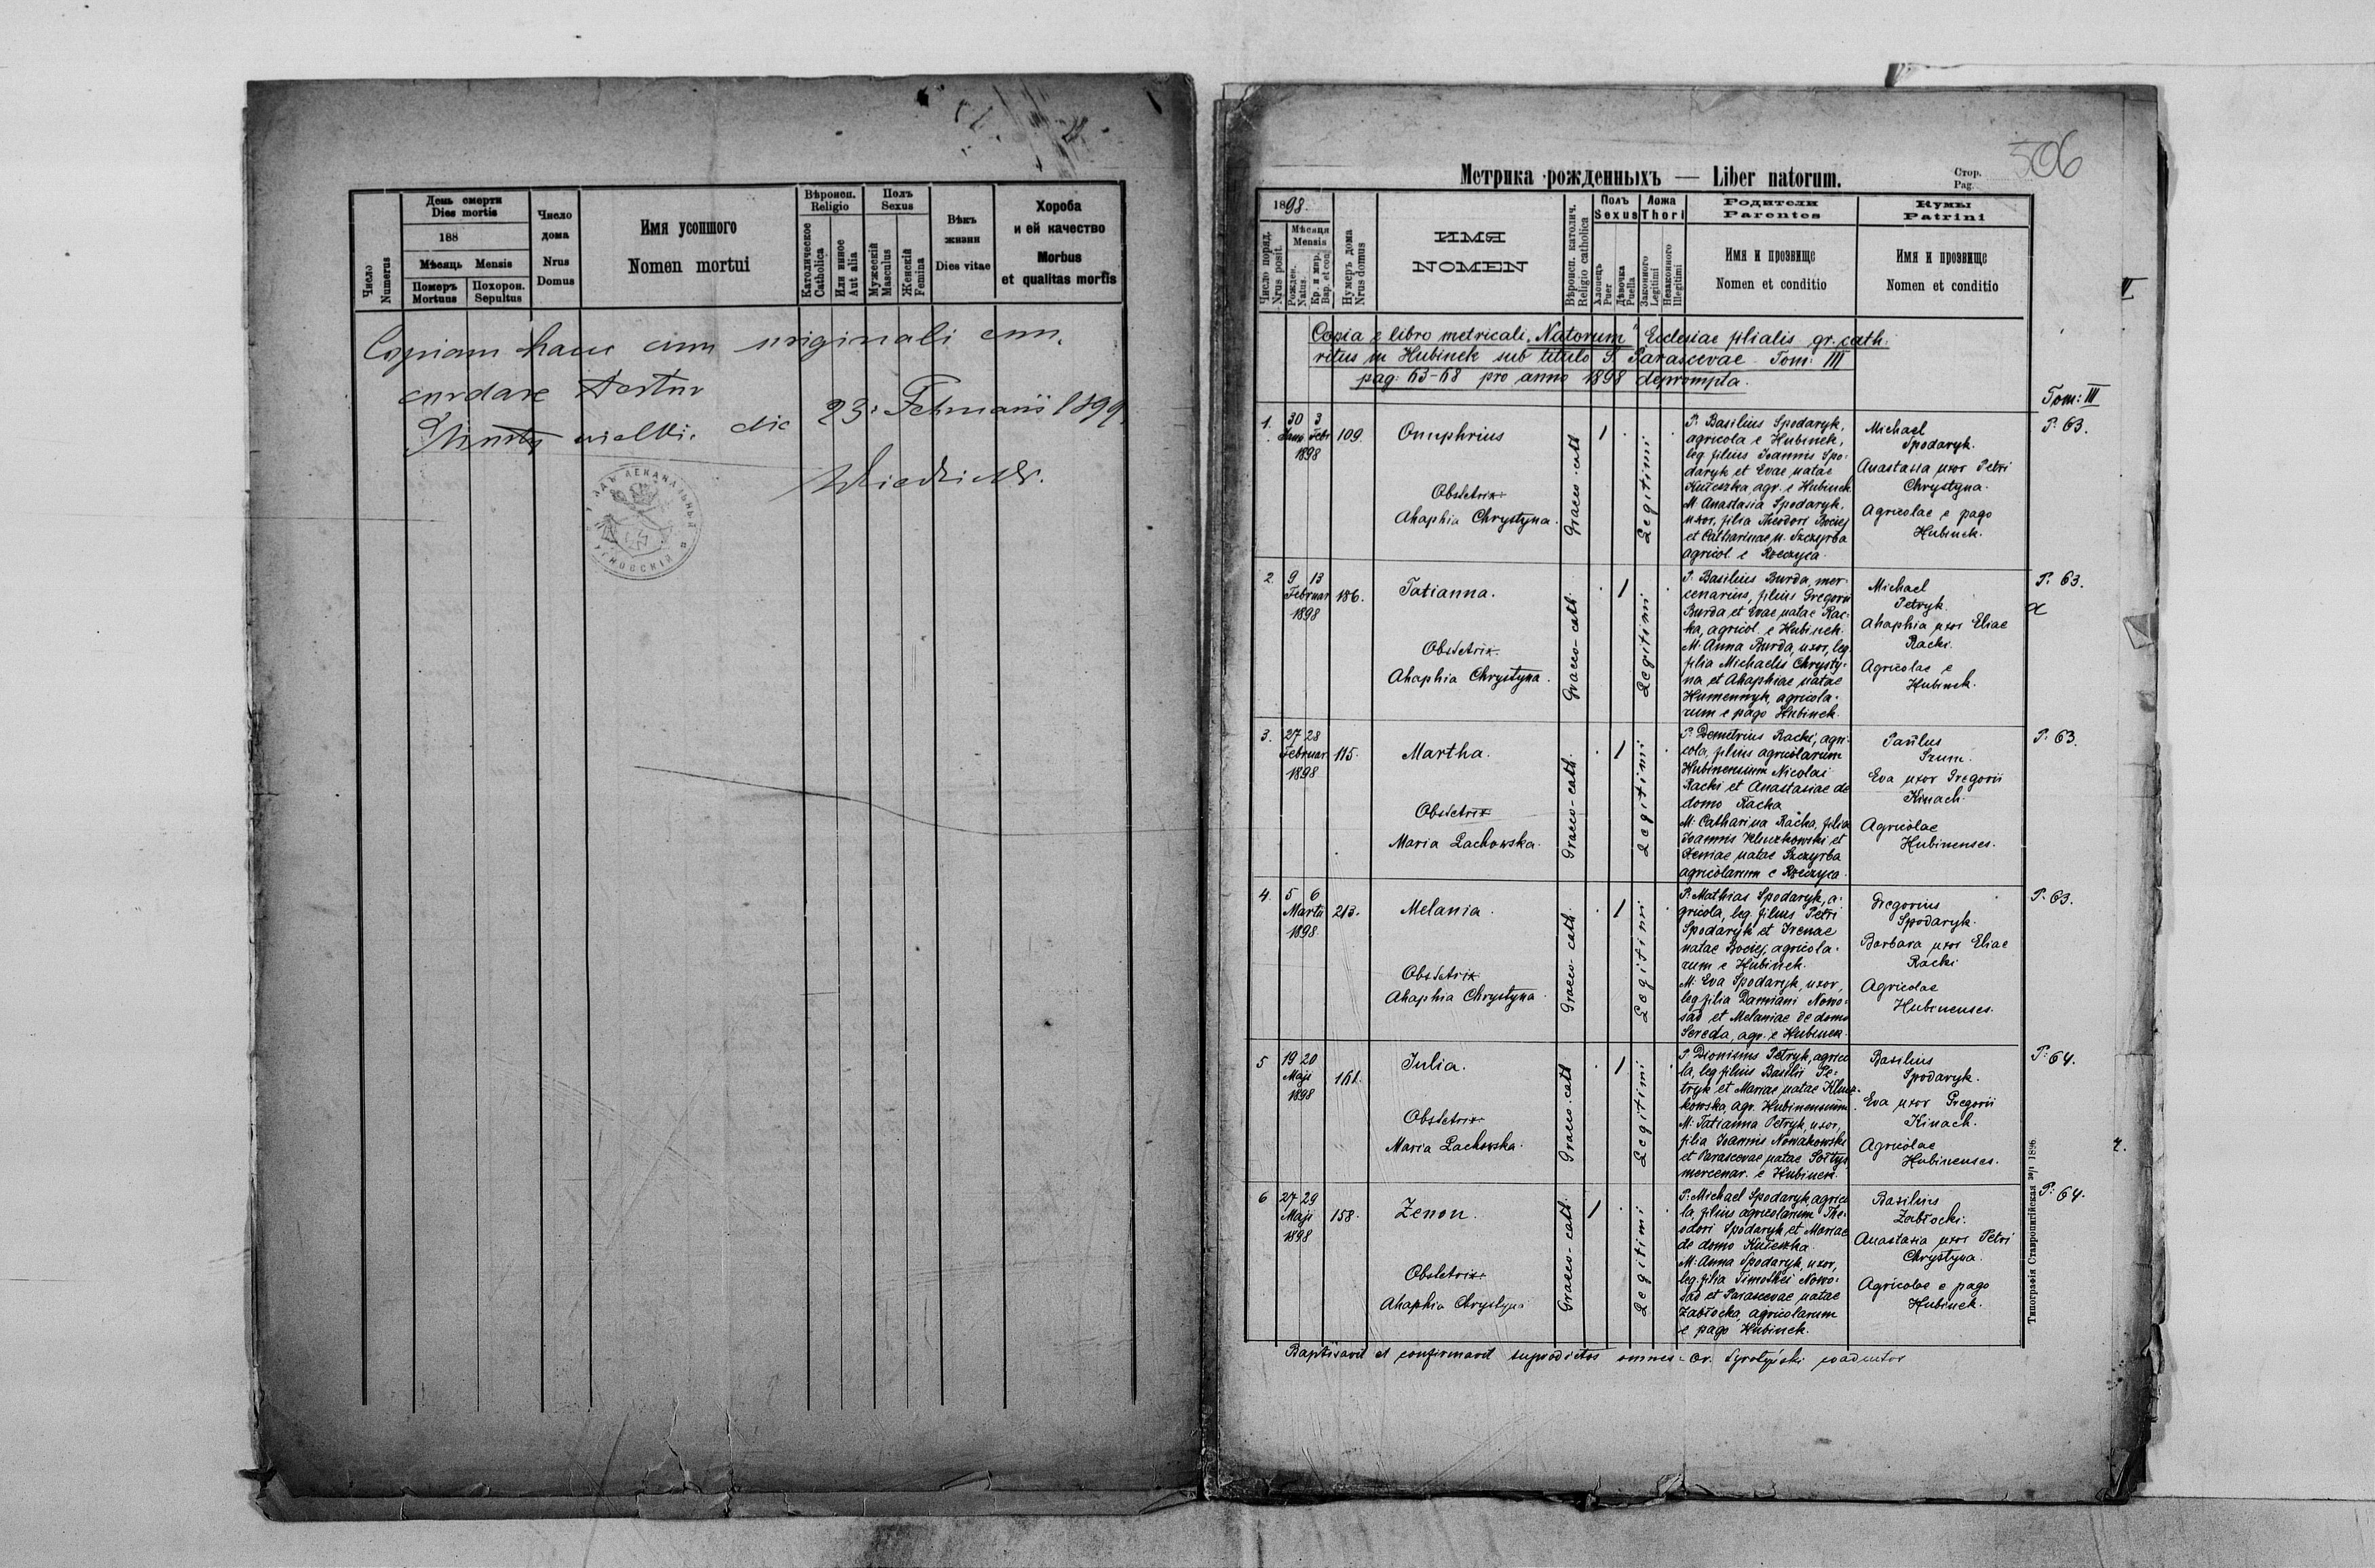 День смерти
Dies mortis
188
Мѣсяць Mensis
Число
Numerus
Померъ
Mortuus
Похорон.
Sepultus
Число
дома
Nrus
Domus
Имя усопшого
Nomen mortui
Вѣроисп.
Religio
Католическое
Catholica
Или инное
Aut alia
Полъ
Sexus
Мужескій
Masculus
Женскій
Femina
Вѣкъ
жизни
Dies vitae
Хороба
и ей качество
Morbus
et qualitas mortis
Copiam hanc cum originali con.
cordare
die 23. Februarii 1899.
506
Метрика рожденныхъ — Liber natorum.
Стор.
Pag.
1898.
Число поряд.
Nrus posit.
Мѣсяця
Mensis
Рожден.
Natus
Кр. и мир.
Bap. et con.
Нумеръ дома
Nrus domus
ИМЯ
NOMEN
Вѣроисп. католич.
Religio catholica
Полъ
Sexus
Хлопецъ
Puer
Дѣвочка
Puella
Ложа
Thori
Законного
Legitimi
Незаконного
Illegitimi
Родители
Parentes
Имя и прозвище
Nomen et conditio
Кумы
Patrini
Имя и прозвище
Nomen et conditio
Copia e libro metricali "Natorum" Ecclesiae filialis gr. cath.
ritus in Hubinek sub titulo S. Parascevae Tom: III
pag: 63-68 pro anno 1898 deprompta.
Tom: III
1.
30 3
Janu. Febr
1898
109.
Onuphrius
Obstetrix
Ahaphia Chrystyna.
Graeco-cath
1
Legitimi
P. Basilius Spodaryk,
agricola e Hubinek,
leg. filius Joannis Spo-
daryk et Evae natae
Kułeszka agr. e Hubinek
M. Anastasia Spodaryk,
uxor, filia Theodori Bociej
et Catharinae n. Szczyrba
agricol. e Rzeczyca.
Michael
Spodaryk.
Anastasia uxor Petri
Chrystyna.
Agricolae e pago
Hubinek.
P. 63.
2.
9 13
Februar
1898
186.
Tatianna.
Obstetrix.
Ahaphia Chrystyna.
Graeco-cath.
1
Legitimi
P. Basilius Burda, mer-
cenarius, filius Gregorii
Burda et Evae natae Rac-
ka, agricol. e Hubinek.
M. Anna Burda, uxor, leg.
filia Michaelis Chrysty-
na et Ahaphiae natae
Humennyk, agricola-
rum e pago Hubinek.
Michael
Petryk.
Ahaphia uxor Eliae
Racki.
Agricolae e
Hubinek.
P. 63.
3.
27 28
Februar.
1898
115.
Martha.
Obstetrix
Maria Lachowska.
Graeco-cath.
1
Legitimi
P. Demetrius Racki, agri-
cola, filius agricolarum
Hubinensium Nicolai
Racki et Anastasiae de
domo Racka
M. Catharina Racka, filia
Joannis Kluczkowski et
Xeniae natae Szczyrba
agricolarum e Rzeczyca.
Paulus
Szum.
Eva uxor Gregorii
Kinach.
Agricolae
Hubinenses.
P. 63.
4.
5 6
Martii
1898.
213.
Melania.
Obstetrix
Ahaphia Chrystyna.
Graeco-cath.
1
Legitimi
P. Mathias Spodaryk, a-
gricola, leg. filius Petri
Spodaryk et Irenae
natae Bociej, agricola-
rum e Hubinek.
M. Eva Spodaryk, uxor,
leg. filia Damiani Nowo-
sad et Melaniae de domo
Sereda, agr. e Hubinek.
Gregorius
Spodaryk.
Barbara uxor Eliae
Racki
Agricolae
Hubinenses.
P. 63.
5
19 20
Maji
1898
161.
Julia.
Obstetrix
Maria Lachowska.
Graeco-cath
1
Legitimi
P. Dionisius Petryk, agrico
la, leg. filius Basilii Pe-
tryk et Mariae natae Klucz-
kowska, agr. Hubinensium.
M. Tatianna Petryk, uxor,
filia Joannis Nowakowski
et Parascevae natae Sołtys
mercenar. e Hubinek.
Basilius
Spodaryk.
Eva uxor Gregorii
Kinach.
Agricolae
Hubinenses.
P. 64.
6
27 29
Maji
1898
158.
Zenon.
Obstetrix.
Ahaphia Chrystyna
Graeco-cath.
1
Legitimi
P. Michael Spodaryk, agrico
la, filius agricolarum The-
odori Spodaryk et Mariae
de domo Kułeszka.
M. Anna Spodaryk, uxor,
leg. filia Timothei Nowo-
sad et Parascevae natae
Zabłocka, agricolarum
e pago Hubinek.
Basilius
Zabłocki.
Anastasia uxor Petri
Chrystyna.
Agricolae e pago
Hubinek.
P. 64.
Baptisavit et confirmavit supradictos omnes:
coadiutor
Типографія Ставропигійская 1896.